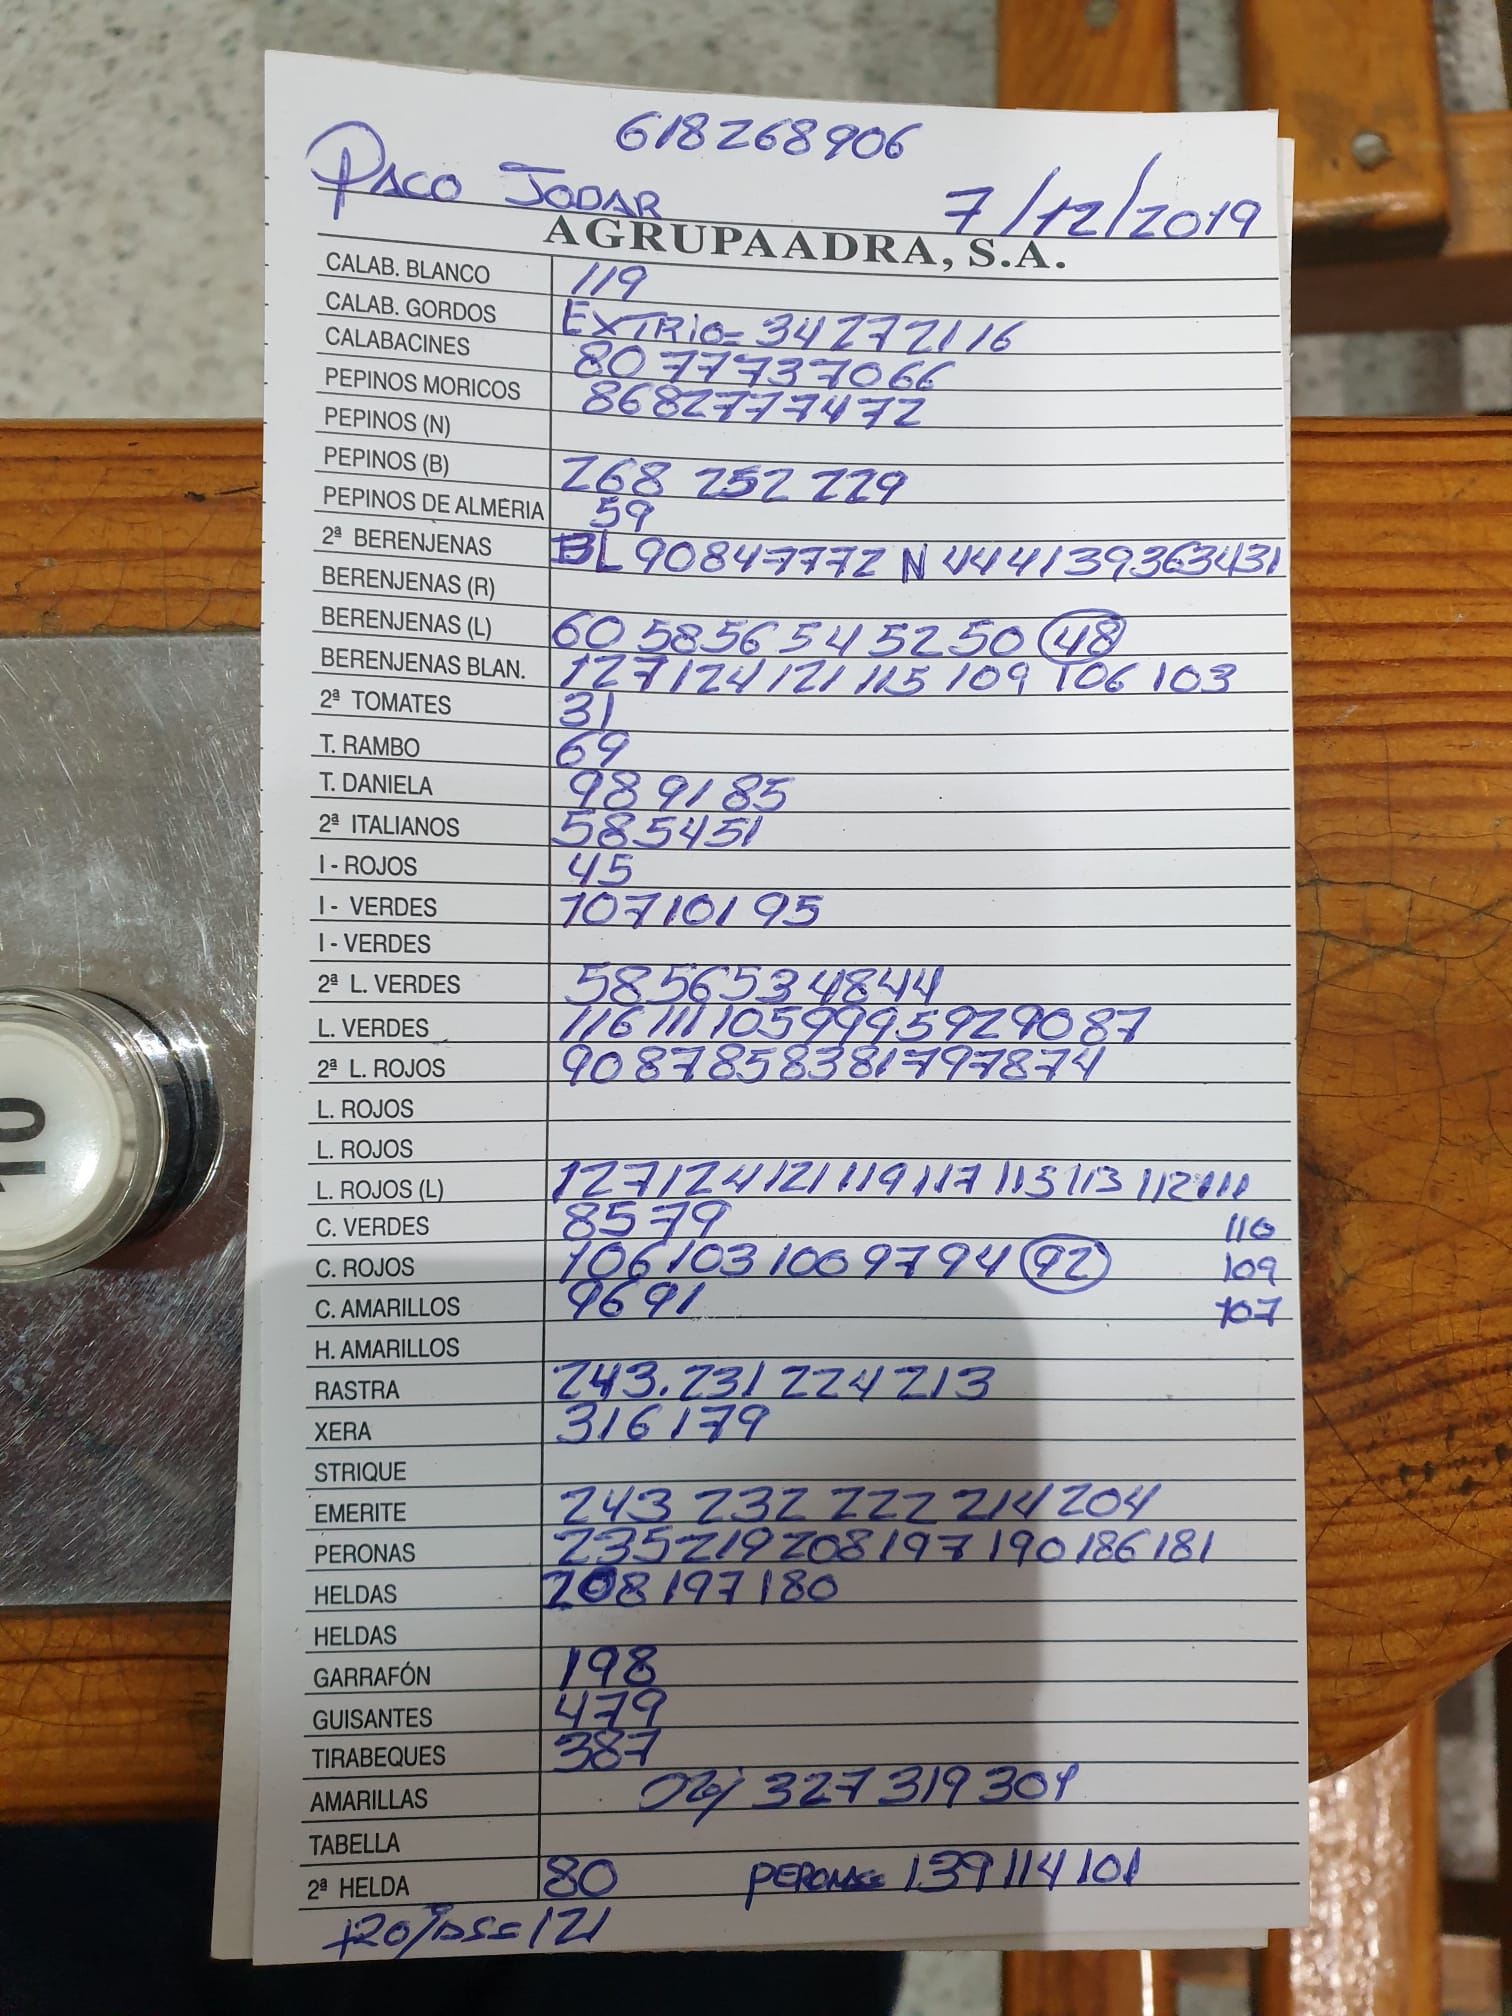 618268906
PACO JODAR 7/12/2019
AGRUPAADRA, S.A.
CALAB. BLANCO 119
CALAB. GORDOS EXTRIO= 34 27 21 16
CALABACINES 80 77 73 70 66
PEPINOS MORICOS 86 82 77 74 72
PEPINOS (N)
PEPINOS (B) 268 252 229
PEPINOS DE ALMERIA 59
2ª BERENJENAS BL 90 84 77 72 N 44 41 39 36 34 31
BERENJENAS (R)
BERENJENAS (L) 60 58 56 54 52 50 48
BERENJENAS BLAN. 127 124 121 115 109 106 103
2ª TOMATES 31
T. RAMBO 69
T. DANIELA 98 91 85
2ª ITALIANOS 58 54 51
I - ROJOS 45
I - VERDES 107 101 95
I - VERDES
2ª L. VERDES 58 56 53 48 44
L. VERDES 116 111 105 99 95 92 90 87
2ª L. ROJOS 90 87 85 83 81 79 78 74
L. ROJOS
L. ROJOS
L. ROJOS (L) 127 124 121 119 117 115 113 112 111
C. VERDES 85 79 110
C. ROJOS 106 103 100 97 94 92 109
C. AMARILLOS 96 91 107
H. AMARILLOS
RASTRA 243. 231 224 213
XERA 316 179
STRIQUE
EMERITE 243 232 222 214 204
PERONAS 235 219 208 197 190 186 181
HELDAS 208 197 180
HELDAS
GARRAFÓN 198
GUISANTES 479
TIRABEQUES 387
AMARILLAS 327 319 301
TABELLA
2ª HELDA 80 139 114 101
121
10